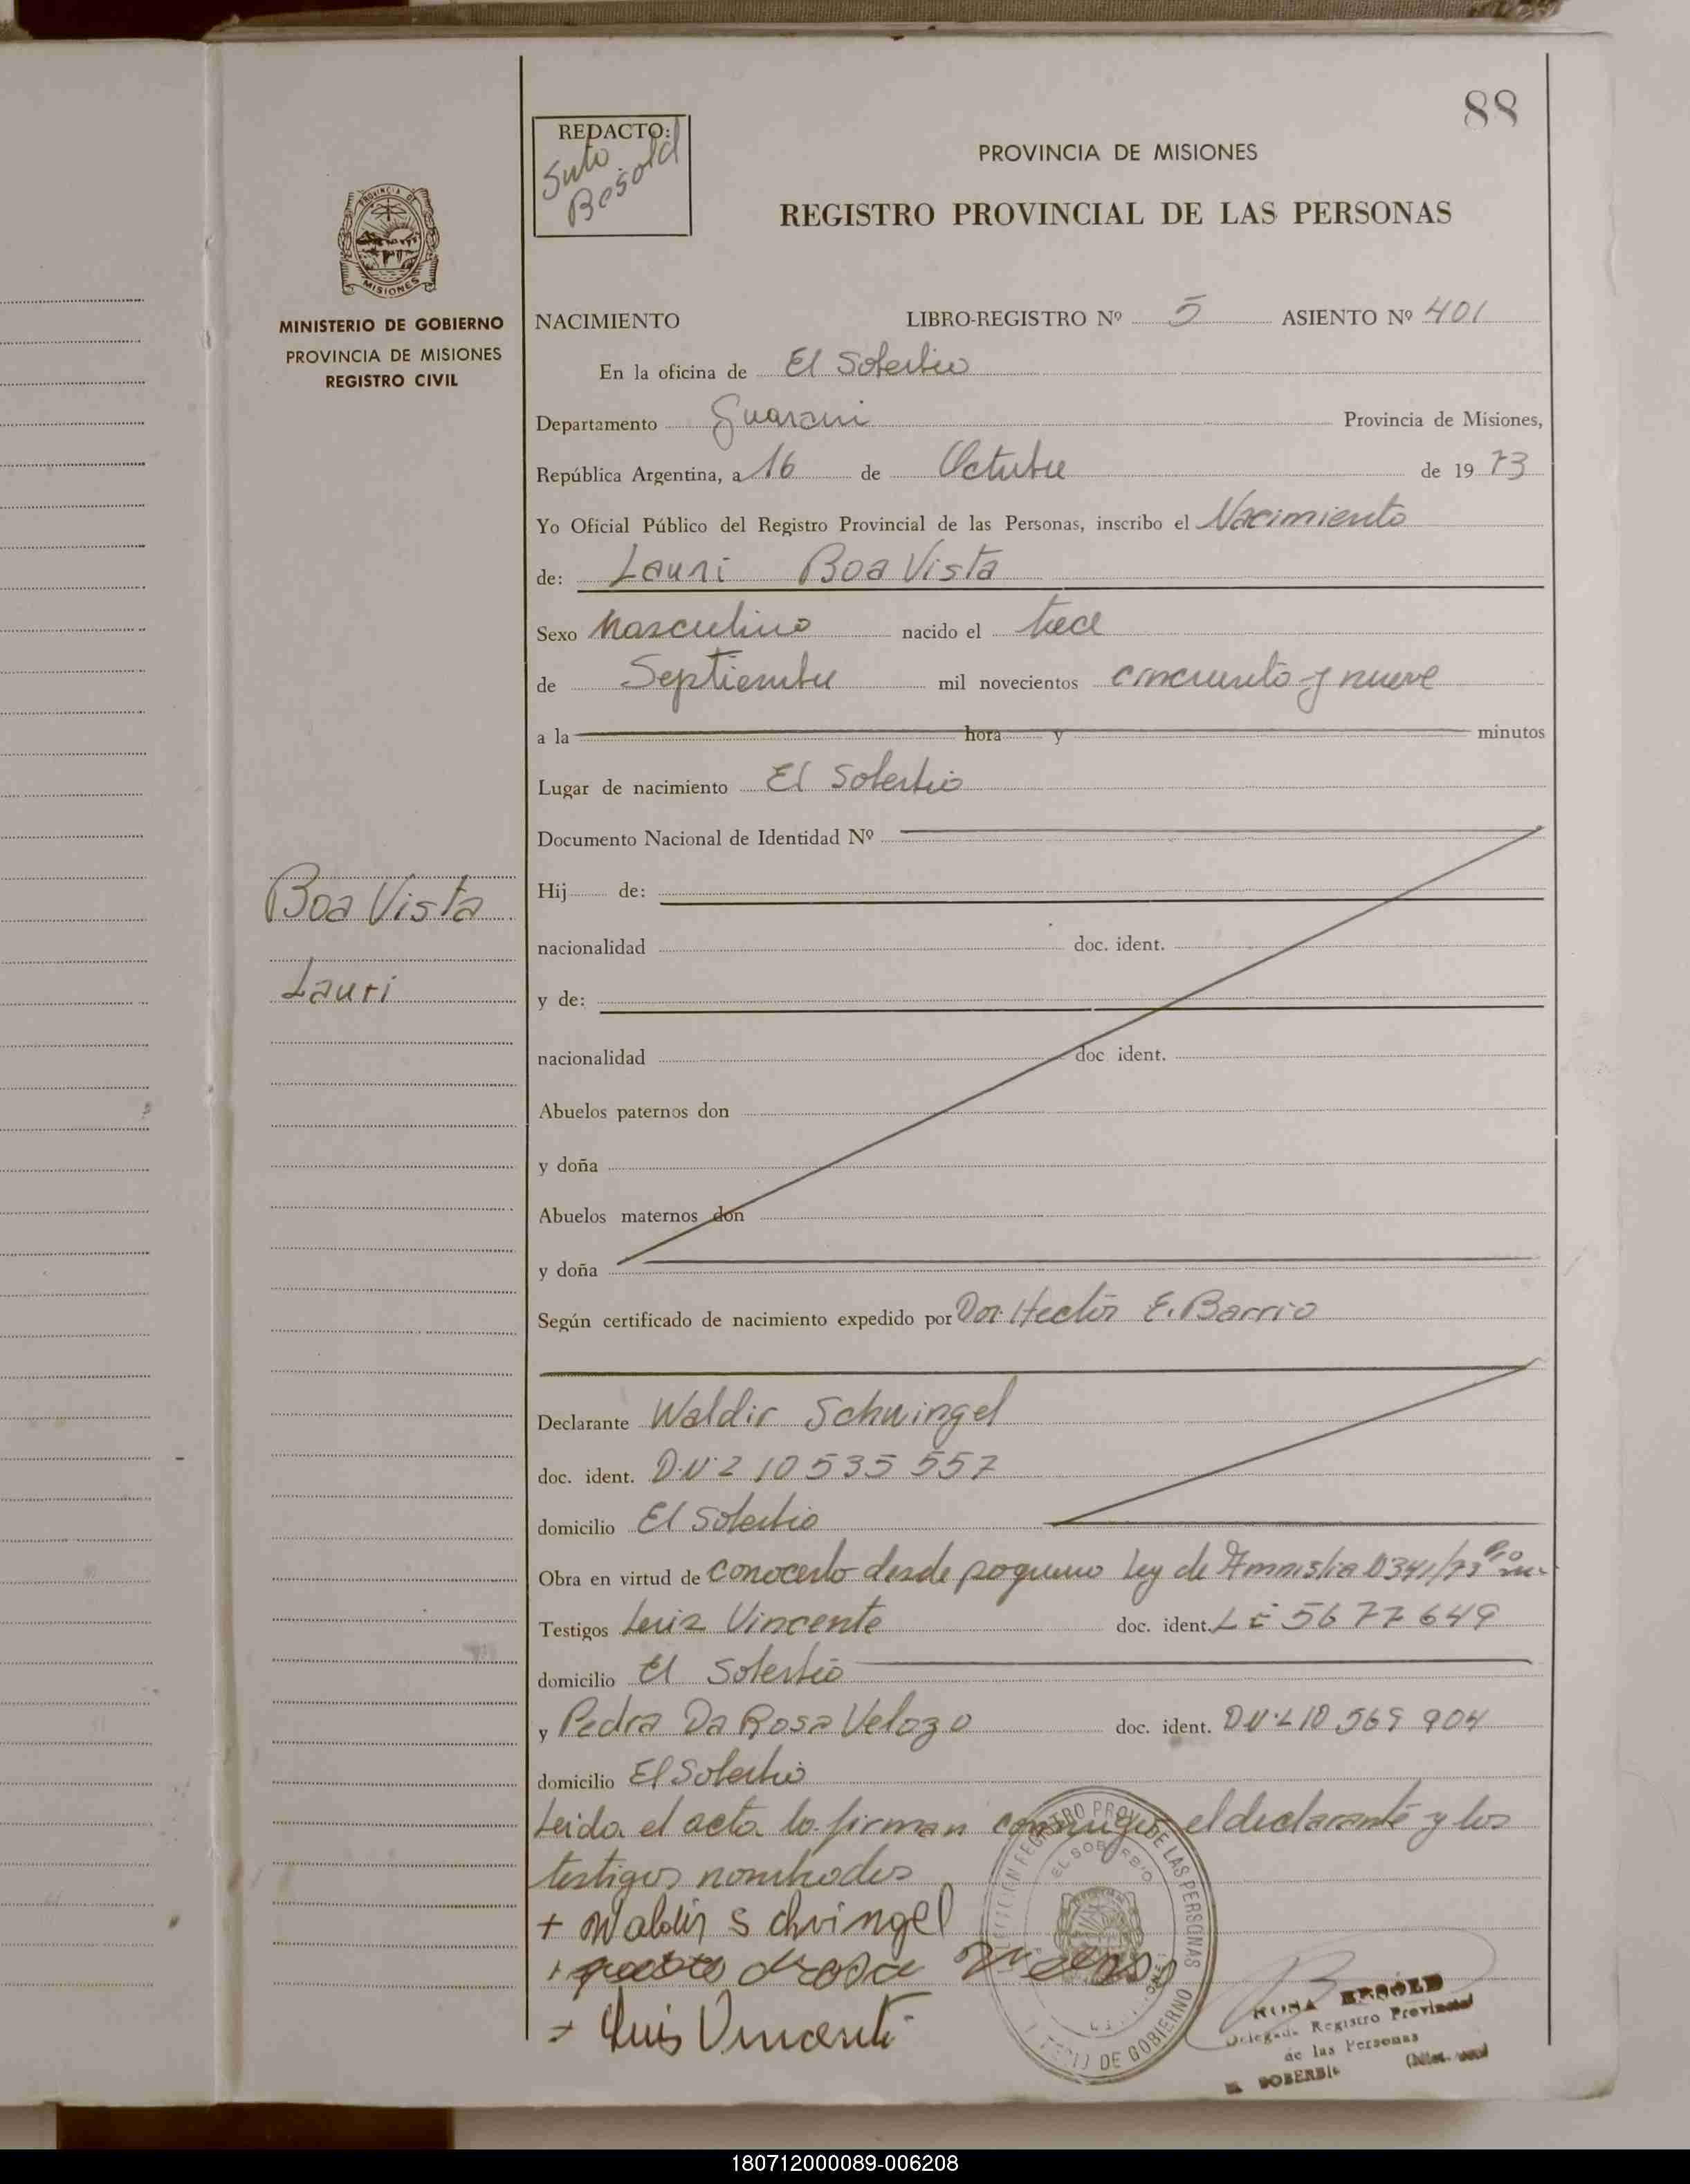 88
REDACTO:
Besold
PROVINCIA DE MISIONES
REGISTRO PROVINCIAL DE LAS PERSONAS
PROVINCIA DE
MISIONES
MINISTERIO DE GOBIERNO
PROVINCIA DE MISIONES
REGISTRO CIVIL
NACIMIENTO LIBRO-REGISTRO Nº 5 ASIENTO Nº 401
En la oficina de El Soberbio
Departamento Guarani Provincia de Misiones,
República Argentina, a 16 de Octubre de 19 73
Yo Oficial Público del Registro Provincial de las Personas, inscribo el Nacimiento
de: Lauri Boa Vista
Sexo Masculino nacido el trece
de Septiembre mil novecientos cincuenta y nueve
a la hora y minutos
Lugar de nacimiento El Soberbio
Documento Nacional de Identidad Nº
Boa Vista
Lauri
Hij de:
nacionalidad doc. ident.
y de:
nacionalidad doc ident.
Abuelos paternos don
y doña
Abuelos maternos don
y doña
Según certificado de nacimiento expedido por Dor. Hector E. Barrio
Declarante Waldir Schwingel
doc. ident. D.N.I 10 535 557
domicilio El Soberbio
Obra en virtud de conocerlo desde pequeno Ley de Amnistia
Testigos Luiz Vincente doc. ident. L E 5677649
domicilio El Soberbio
y Pedra Da Rosa Velozo doc. ident. D N I 10 569 904
domicilio El Soberbio
Leida el acta la firman conmigo el declarante y los
testigos nombrados
+ Waldir Schvingel
Luis Vincente
REGISTRO PROV. DE LAS PERSONAS
EL SOBERBIO
DE GOBIERNO
ROSA BESOLD
Delegada Registro Provincial
de las Personas
EL SOBERBIO
180712000089-006208